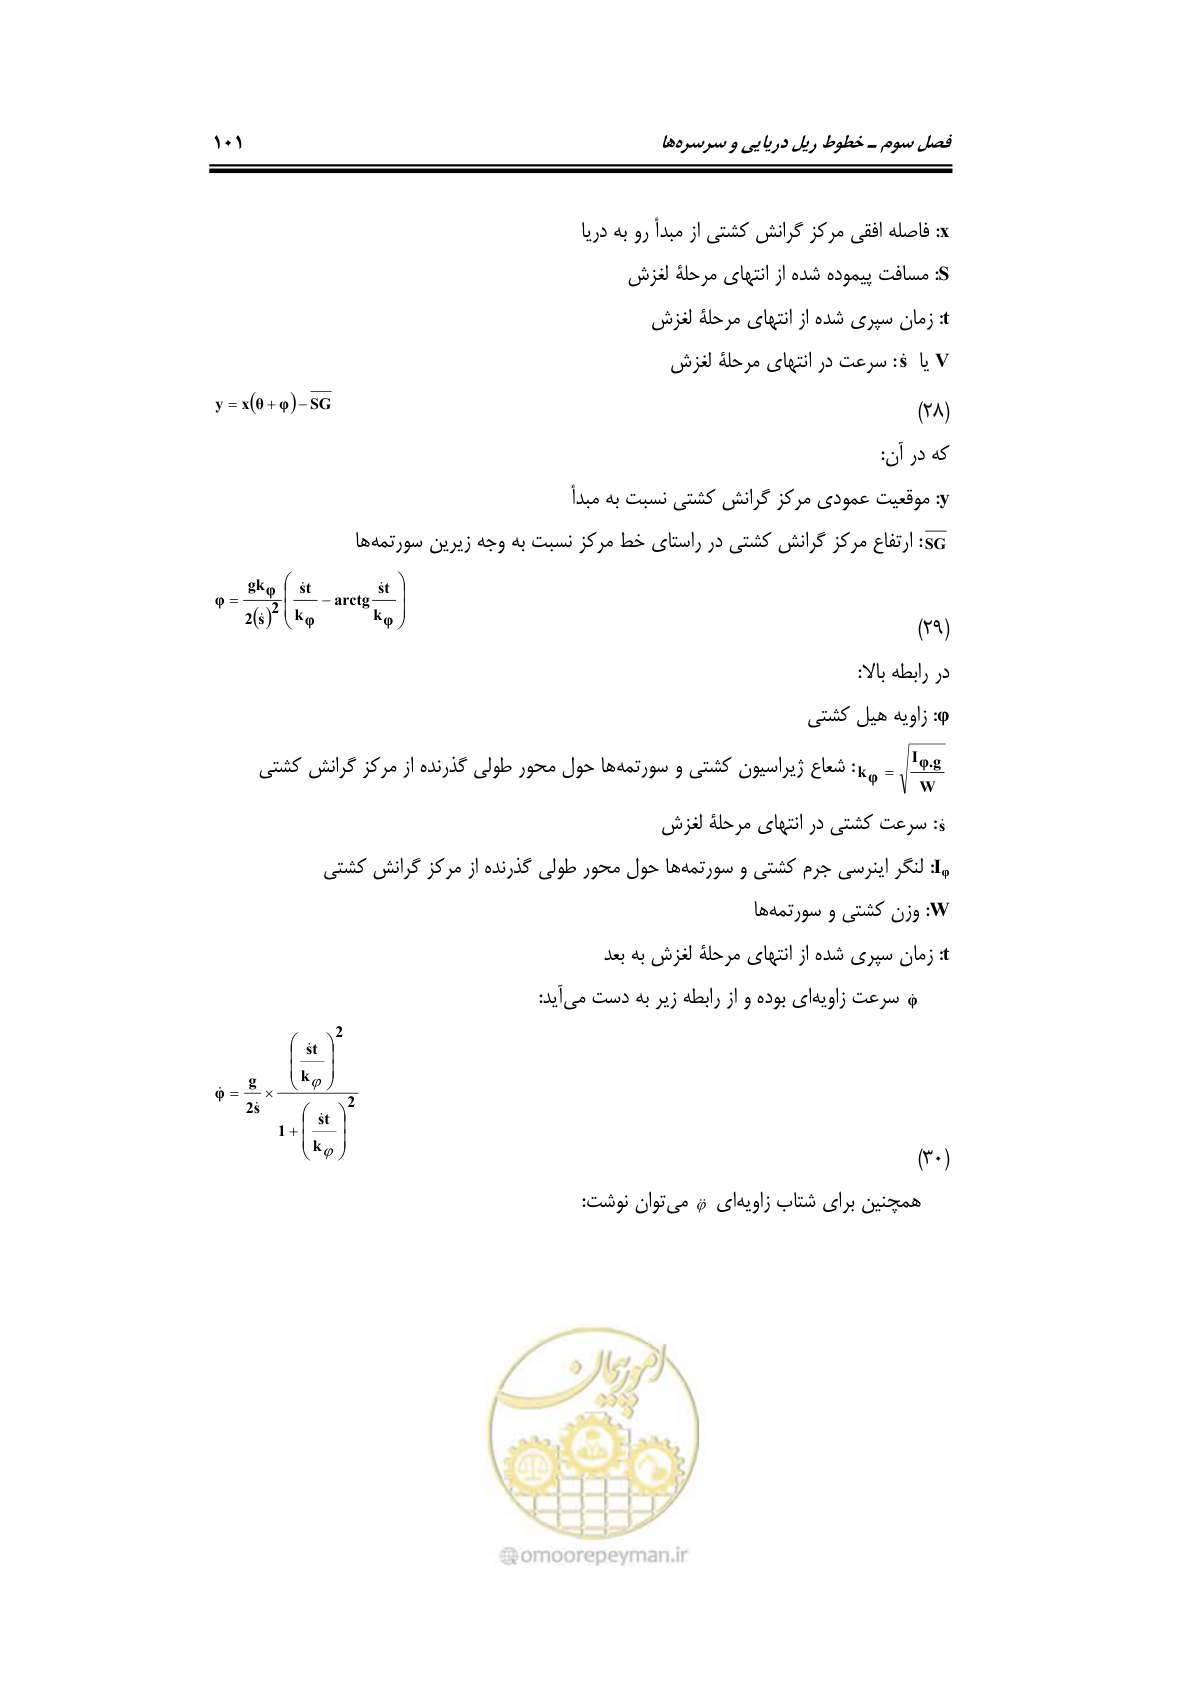 فصل سوم ـ خطوط ریل دریایی و سرسره‌ها ۱۰۱
x: فاصله افقی مرکز گرانش کشتی از مبدأ رو به دریا
S: مسافت پیموده شده از انتهای مرحلهٔ لغزش
t: زمان سپری شده از انتهای مرحلهٔ لغزش
V یا ṡ: سرعت در انتهای مرحلهٔ لغزش
(۲۸) y = x(θ + φ) − S̅G̅
که در آن:
y: موقعیت عمودی مرکز گرانش کشتی نسبت به مبدأ
S̅G̅: ارتفاع مرکز گرانش کشتی در راستای خط مرکز نسبت به وجه زیرین سورتمه‌ها
(۲۹) φ = gk_φ / 2(ṡ)² (ṡt / k_φ − arctg ṡt / k_φ)
در رابطه بالا:
φ: زاویه هیل کشتی
k_φ = √(I_φ.g / W): شعاع ژیراسیون کشتی و سورتمه‌ها حول محور طولی گذرنده از مرکز گرانش کشتی
ṡ: سرعت کشتی در انتهای مرحلهٔ لغزش
I_φ: لنگر اینرسی جرم کشتی و سورتمه‌ها حول محور طولی گذرنده از مرکز گرانش کشتی
W: وزن کشتی و سورتمه‌ها
t: زمان سپری شده از انتهای مرحلهٔ لغزش به بعد
φ̇ سرعت زاویه‌ای بوده و از رابطه زیر به دست می‌آید:
(۳۰) φ̇ = g / 2ṡ × (ṡt / k_φ)² / (1 + (ṡt / k_φ)²)
همچنین برای شتاب زاویه‌ای φ̈ می‌توان نوشت:
امور پیمان
@omoorepeyman.ir